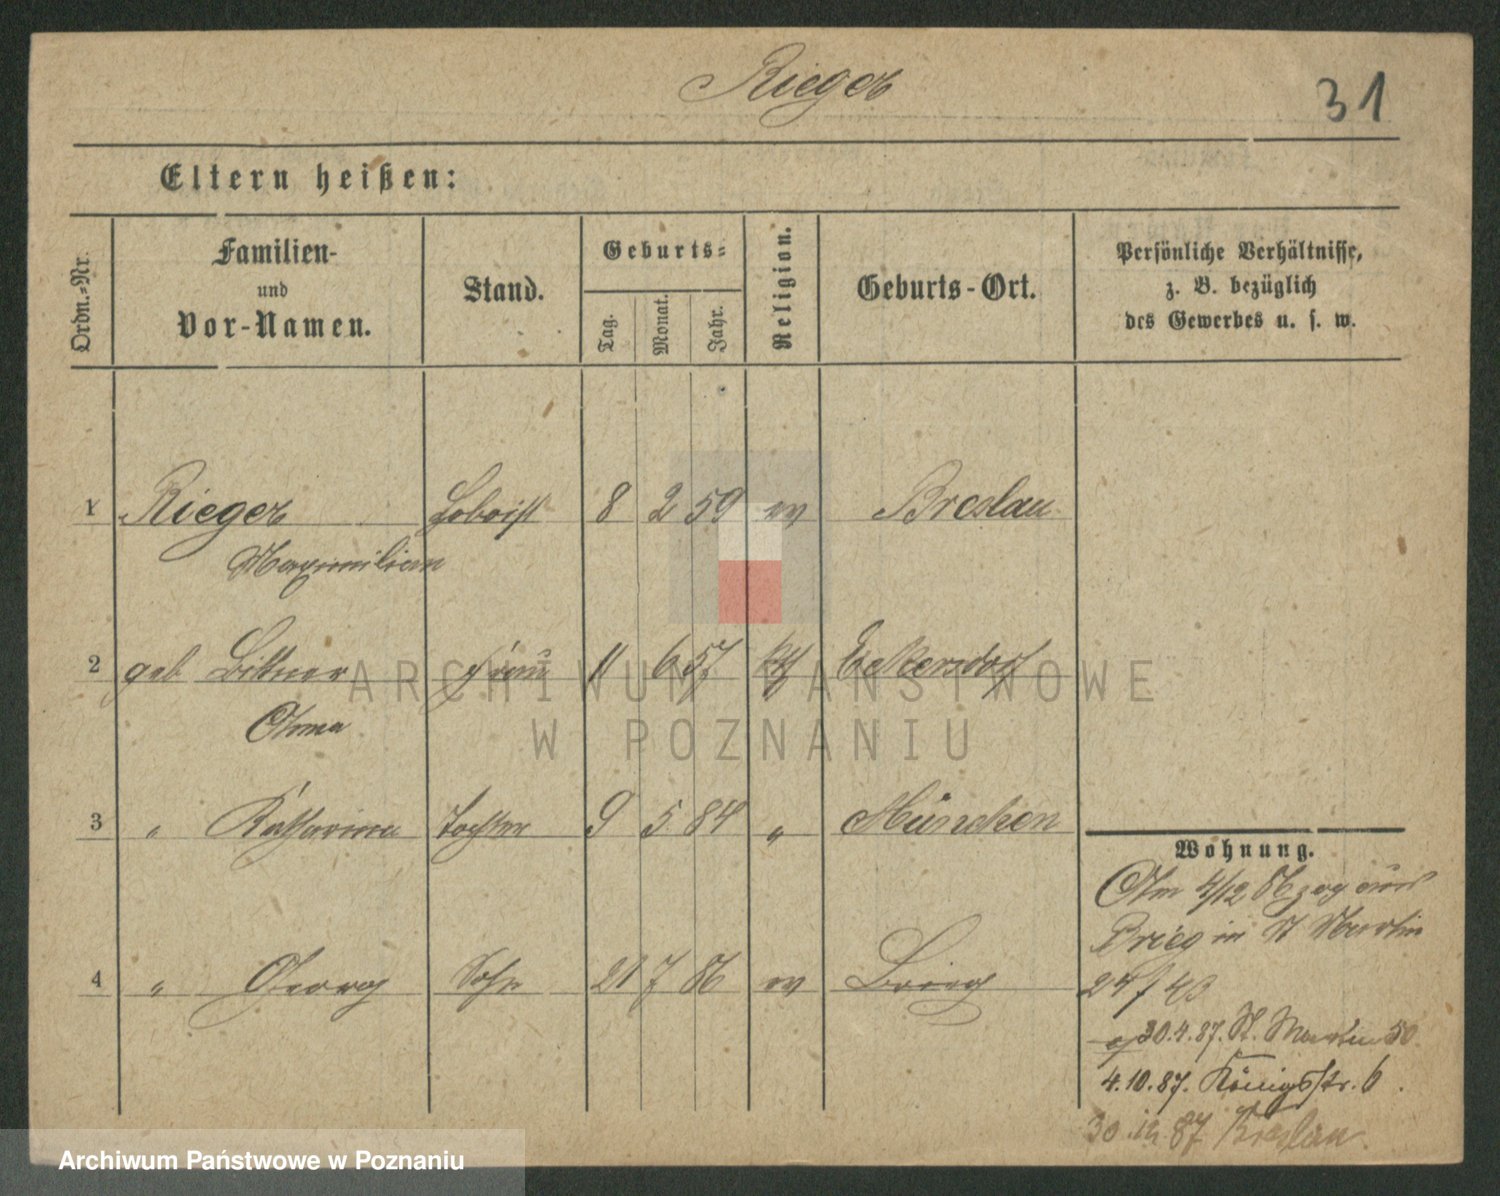 Rieger
31
Eltern heißen:
Ordn.-Nr.
Familien-
und
Vor-Namen.
Stand.
Geburts-
Tag.
Monat.
Jahr.
Religion.
Geburts-Ort.
Persönliche Verhältnisse,
z. B. bezüglich
des Gewerbes u. s. w.
1 Rieger Hoboist 8 2 59 ev Breslau
Maximilian
2 geb Bittner Frau 11 6 57 kth Eckersdorf
Anna
3 " Katharina Tochter 9 5 84 " München
4 " Georg Sohn 21 7 86 ev Brieg
Wohnung.
Am 4/12 86 zog aus
Brieg in St Martin
24/
30.4.87. St. Martin 50.
4.10.87. Königsstr. 6.
30. 87 Breslau.
ARCHIWUM PAŃSTWOWE
W POZNANIU
Archiwum Państwowe w Poznaniu